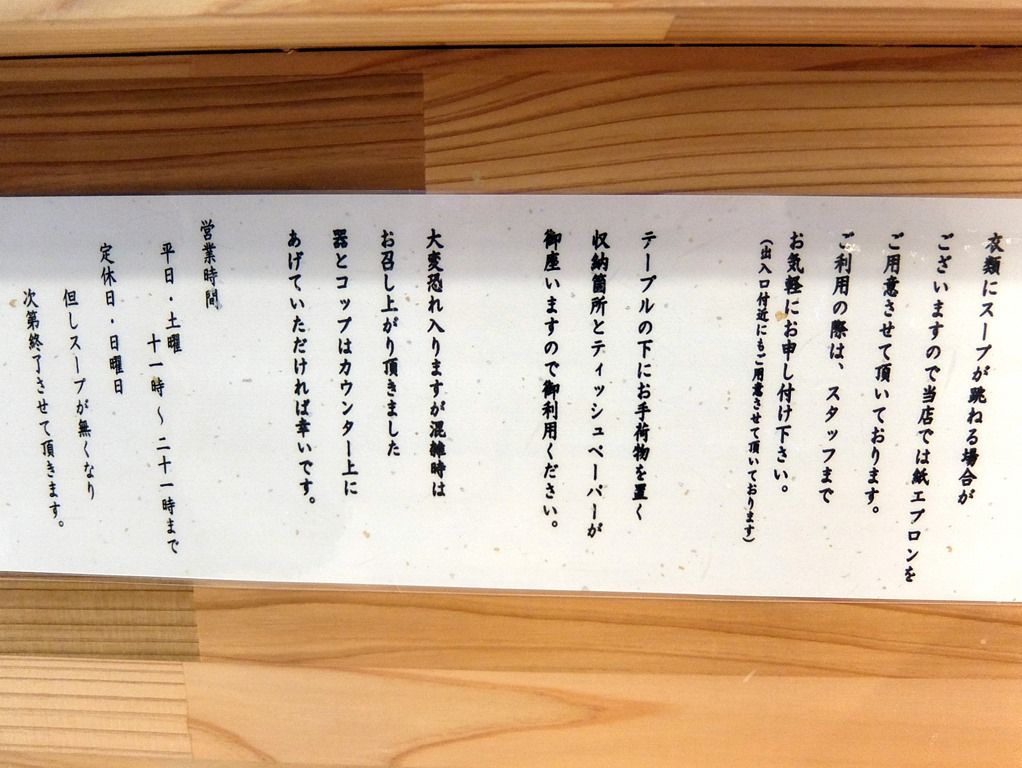 衣類にスープが跳ねる場合が
ございますので当店では紙エプロンを
ご用意させて頂いております。
ご利用の際は、スタッフまで
お気軽にお申し付け下さい。
(出入口付近にもご用意させて頂いております)
テーブルの下にお手荷物を置く
収納箇所とティッシュペーパーが
御座いますので御利用ください。
大変恐れ入りますが混雑時は
お召し上がり頂きました
器とコップはカウンター上に
あげていただければ幸いです。
営業時間
平日・土曜
十一時～二十一時まで
定休日・日曜日
但しスープが無くなり
次第終了させて頂きます。